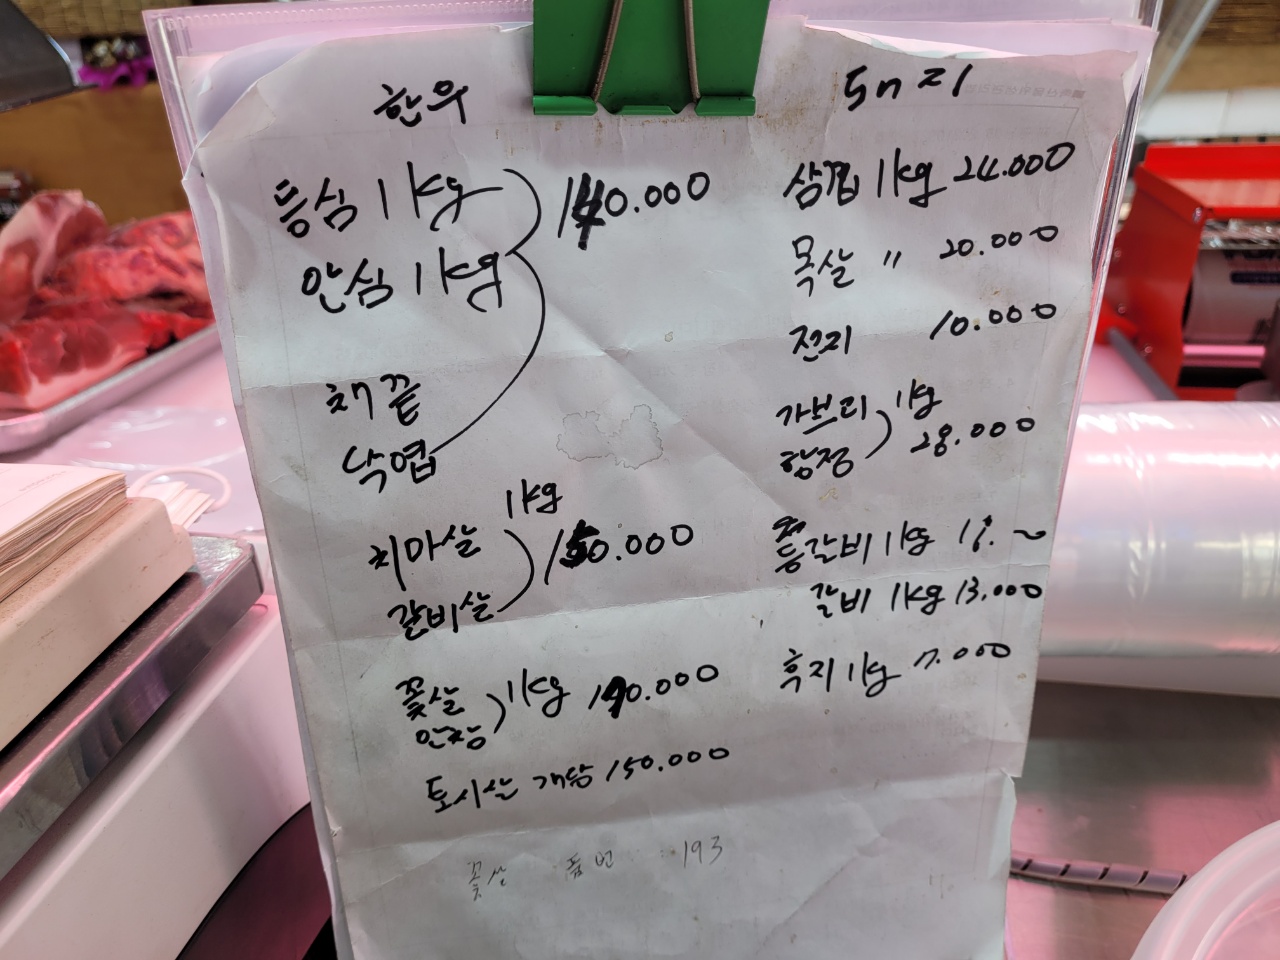 한우
등심 1kg 140.000
안심 1kg
채끝
낙엽
치마살 1kg 150.000
갈비살
꽃살 1kg 190.000
안창
토시살 개당 150.000
꽃살 품번 193
돼지
삼겹 1kg 24.000
목살 〃 20.000
전지 10.000
가브리 1kg 28.000
항정
등갈비 1kg
갈비 1kg 13.000
후지 1kg 7.000